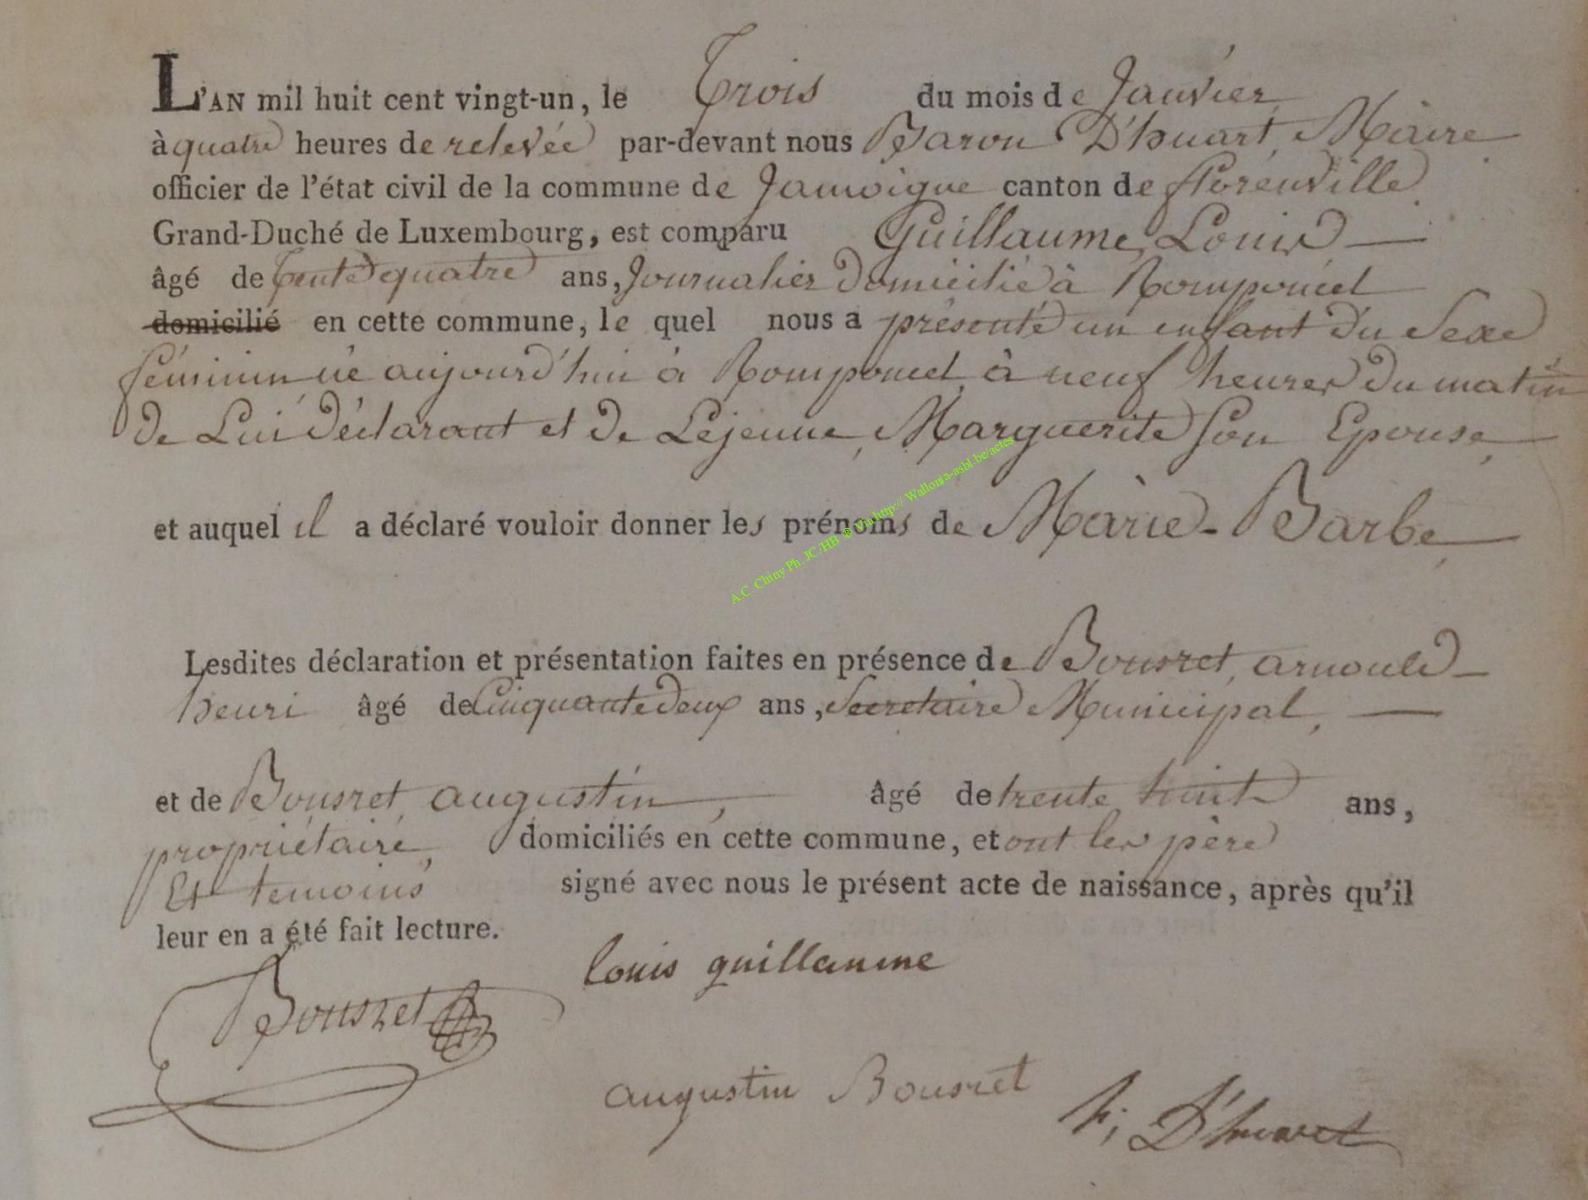 L'AN mil huit cent vingt-un, le Trois du mois de Janvier
à quatre heures de relevée par-devant nous Baron D'huart, Maire
officier de l'état civil de la commune de Jamoigne canton de florenville
Grand-Duché de Luxembourg, est comparu Guillaume, Louis
âgé de trente quatre ans, Journalier Domicilié à Romponcel
domicilié en cette commune, le quel nous a présenté un enfant du Sexe
féminin né aujourd'hui à Romponcel, à neuf heures du matin
de Lui déclarant et de Lejeune, Marguerite son Epouse,
et auquel il a déclaré vouloir donner les prénoms de Marie-Barbe,
A.C. Chiny Ph. JC/HB @ Via http:// Wallonia-asbl.be/actes
Lesdites déclaration et présentation faites en présence de Bousret, arnould
henri âgé de Cinquante deux ans, Secretaire Municipal,
et de Bousret augustin, âgé de trente huit ans,
propriétaire, domiciliés en cette commune, et ont les père
Et temoins signé avec nous le présent acte de naissance, après qu'il
leur en a été fait lecture.
louis guillaume
Bousret
augustin Bousret
D'huart